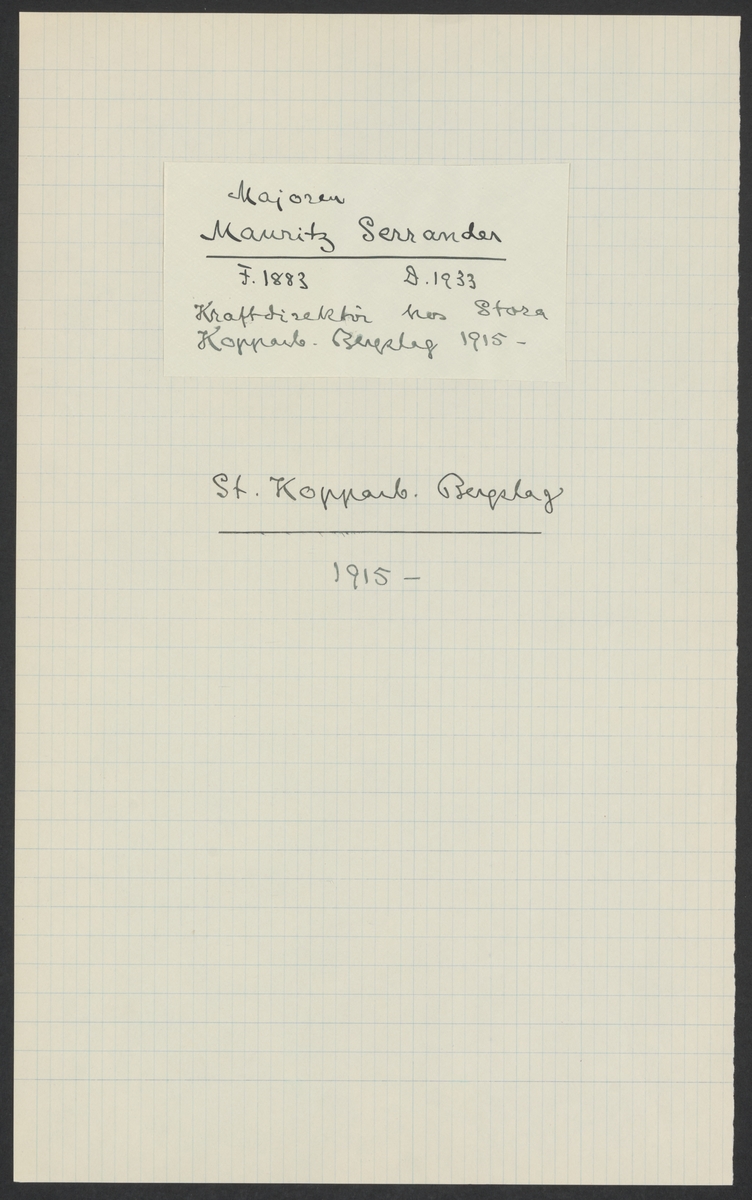 Majoren
Mauritz Serrander
F. 1883 D. 1933
Kraftdirektör hos Stora
Kopparb. Bergslag 1915 –
St. Kopparb. Bergslag
1915 –